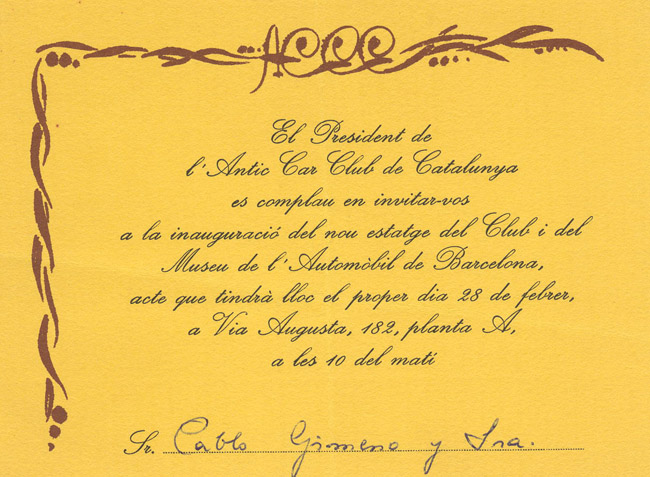 ACCC
El President de
l'Antic Car Club de Catalunya
es complau en invitar-vos
a la inauguració del nou estatge del Club i del
Museu de l'Automòbil de Barcelona,
acte que tindrà lloc el proper dia 28 de febrer,
a Via Augusta, 182, planta A,
a les 10 del matí
Sr. Pablo Gimeno y Sra.